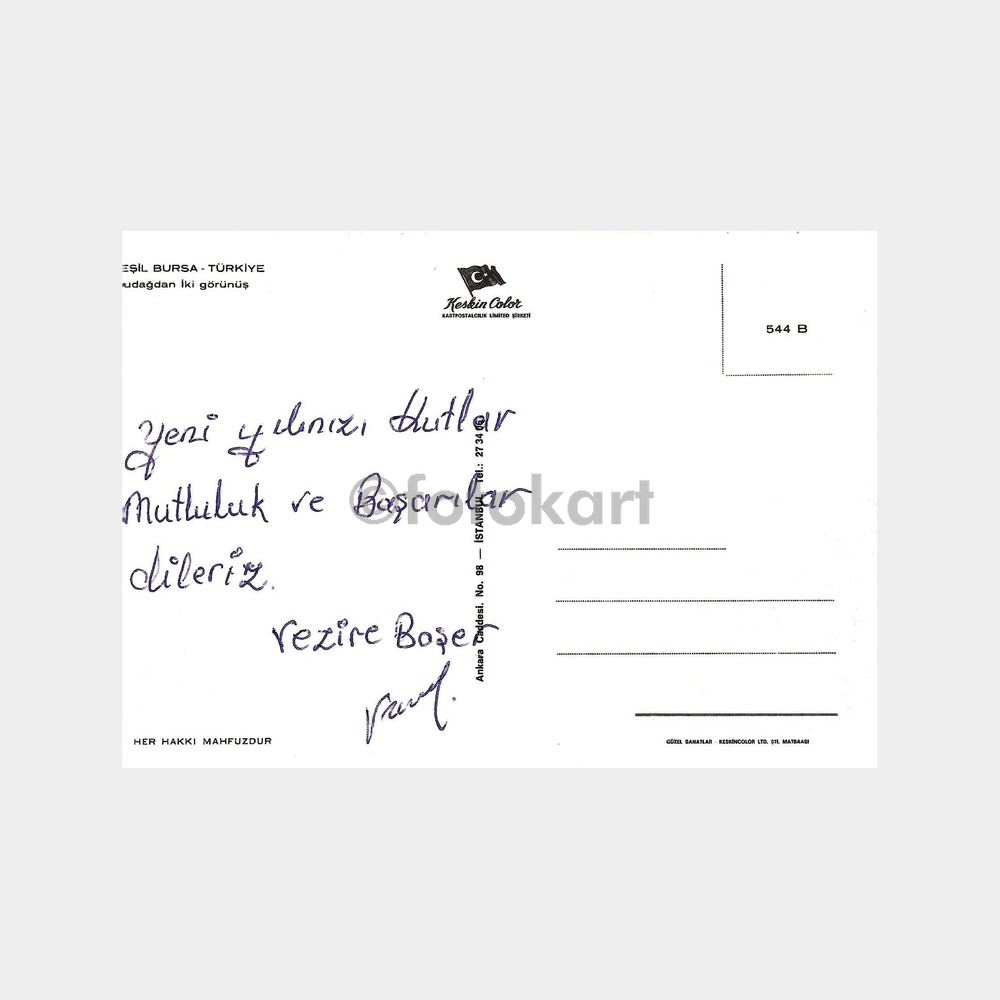 EŞİL BURSA - TÜRKİYE
udağdan İki görünüş
Keskin Color
KARTPOSTALCILIK LIMITED ŞİRKETİ
544 B
Yeni yılınızı Kutlar
Mutluluk ve Başarılar
dileriz.
Vezire Boşer
Ankara Caddesi. No. 98 — İSTANBUL Tel.: 27 34 06
©fotokart
HER HAKKI MAHFUZDUR
GÜZEL SANATLAR - KESKİNCOLOR LTD. ŞTİ. MATBAASI